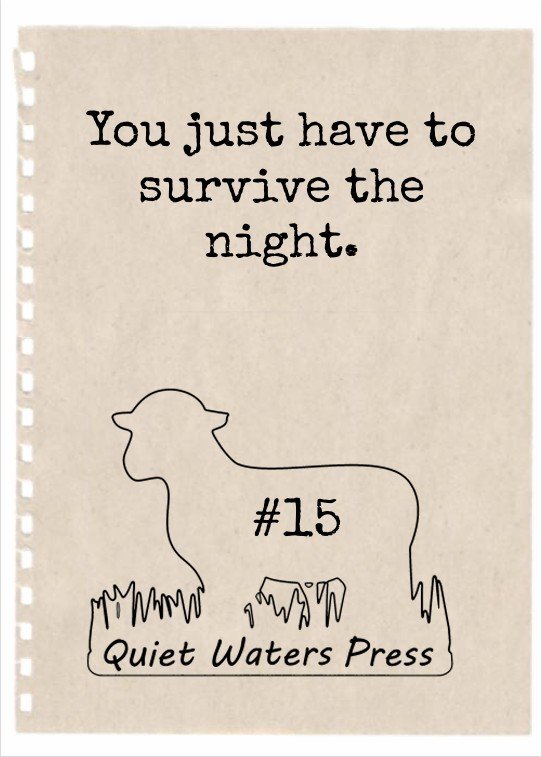 You just have to
survive the
night.
#15
Quiet Waters Press